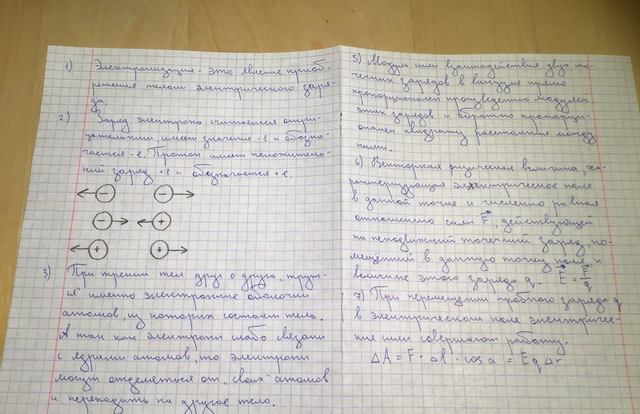 1) Электризация - это явление приоб-
ретения телом электрического заря-
да.
2) Заряд электрона считается отри-
цательным, имеет значение -1 и обозна-
чается -е. Протон имеет положитель-
ный заряд +1 и обозначается +е.
← - - →
- → ← +
← + + →
3) При трении тел друг о друга "трут-
ся" именно электронные оболочки
атомов, из которых состоят тела.
А так как электроны слабо связаны
с ядрами атомов, то электроны
могут отделяться от "своих" атомов
и переходить на другое тело.
5) Модуль силы взаимодействия двух то-
чечных зарядов в вакууме прямо
пропорционален произведению модулей
этих зарядов и обратно пропорци-
онален квадрату расстояния между
ними.
6) Векторная физическая величина, ха-
рактеризующая электрическое поле
в данной точке и численно равная
отношению силы F, действующей
на неподвижный точечный заряд, по-
мещённый в данную точку поля, к
величине этого заряда q. E = F/q
7) При перемещении пробного заряда q
в электрическом поле электричес-
кие силы совершают работу.
ΔA = F · Δl · cos α = E q Δr